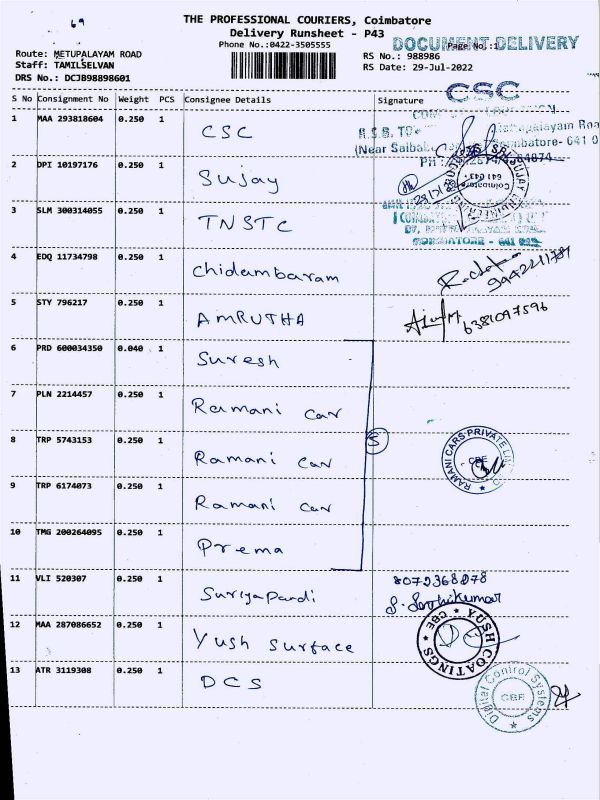 69
THE PROFESSIONAL COURIERS, Coimbatore
Delivery Runsheet - P43
Phone No.:0422-3505555
DOCUMENT DELIVERY
Page No.:1
Route: METUPALAYAM ROAD
Staff: TAMILSELVAN
DRS No.: DCJB98898601
RS No.: 988986
RS Date: 29-Jul-2022
S No Consignment No Weight PCS Consignee Details Signature
CSC
1 MAA 293818604 0.250 1 CSC
(Near Saibaba
2 DPI 10197176 0.250 1 Sujay
SRI SUJAY
Coimbatore
641 043
3 SLM 300314055 0.250 1 TNSTC
COIMBATORE - 641
4 EDQ 11734798 0.250 1 Chidambaram
5 STY 796217 0.250 1 AMRUTHA
6381097596
6 PRD 600034350 0.040 1 Suresh
7 PLN 2214457 0.250 1 Ramani Car
5
8 TRP 5743153 0.250 1 Ramani Car
RAMANI CARS PRIVATE
CBE
9 TRP 6174073 0.250 1 Ramani Car
10 TMG 200264095 0.250 1 Prema
11 VLI 520307 0.250 1 Suriyapandi
S. Sasthikumar
12 MAA 287086652 0.250 1 Yush Surface
YUSH COATINGS
CBE
13 ATR 3119308 0.250 1 DCS
Digital Control Systems
CBE